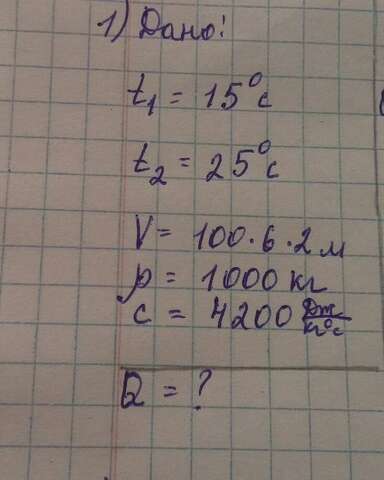 1) Дано:
t₁ = 15°с
t₂ = 25°с
V = 100·6·2м
p = 1000 кг
c = 4200 Дж/кг°с
Q = ?